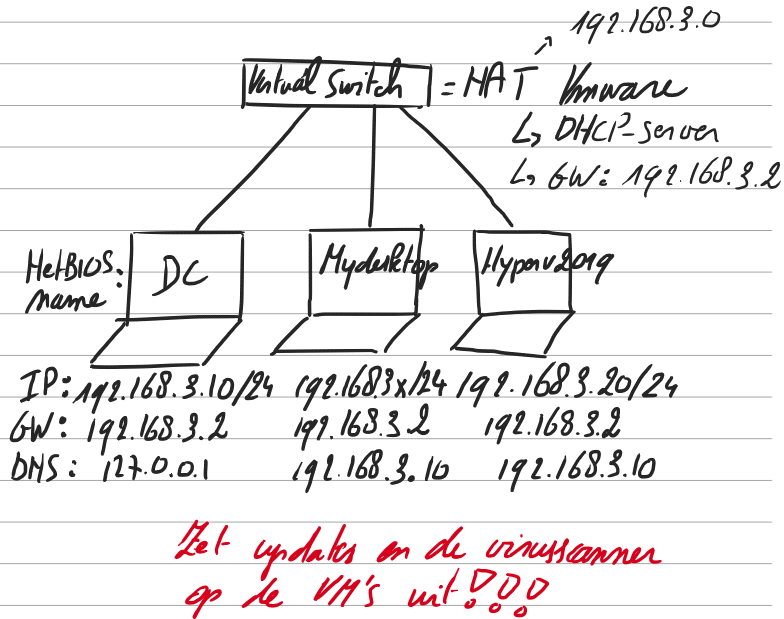 192.168.3.0
Virtual Switch = NAT Vmware
↳ DHCP-server
↳ GW: 192.168.3.2
NetBIOS: DC Mydesktop Hyperv2019
name
IP: 192.168.3.10/24 192.168.3x/24 192.168.3.20/24
GW: 192.168.3.2 192.168.3.2 192.168.3.2
DNS: 127.0.0.1 192.168.3.10 192.168.3.10
Zet updates en de virusscanner
op de VM's uit!!!